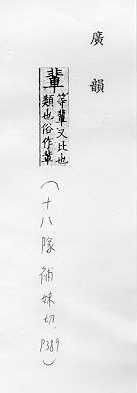 廣韻
輩 等輩又比也
類也俗作軰
(十八隊 補妹切 P389)